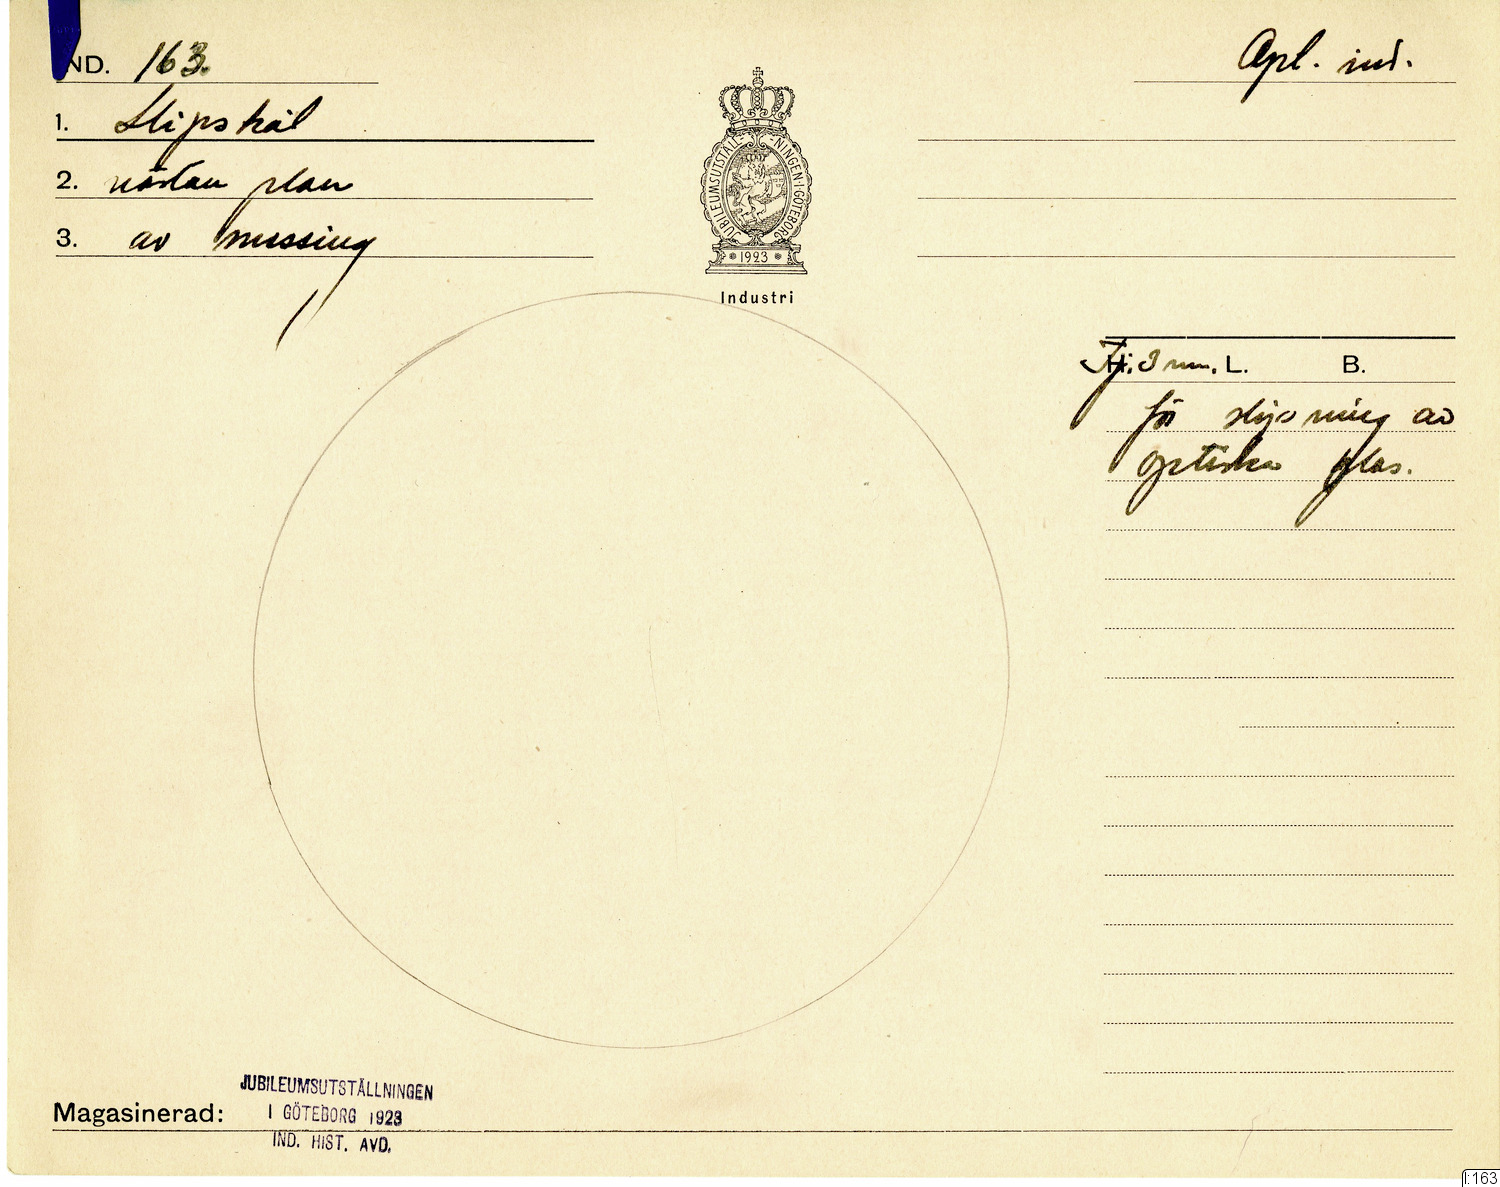 IND. 163.
Opt. ind.
1. Slipskål
2. nästan plan
3. av messing
JUBILEUMSUTSTÄLL-NINGEN·I·GÖTEBORG
1923
Industri
Tj. 3 mm. L. B.
för slipning av
optiska glas.
Magasinerad:
JUBILEUMSUTSTÄLLNINGEN
I GÖTEBORG 1923
IND. HIST. AVD.
I:163